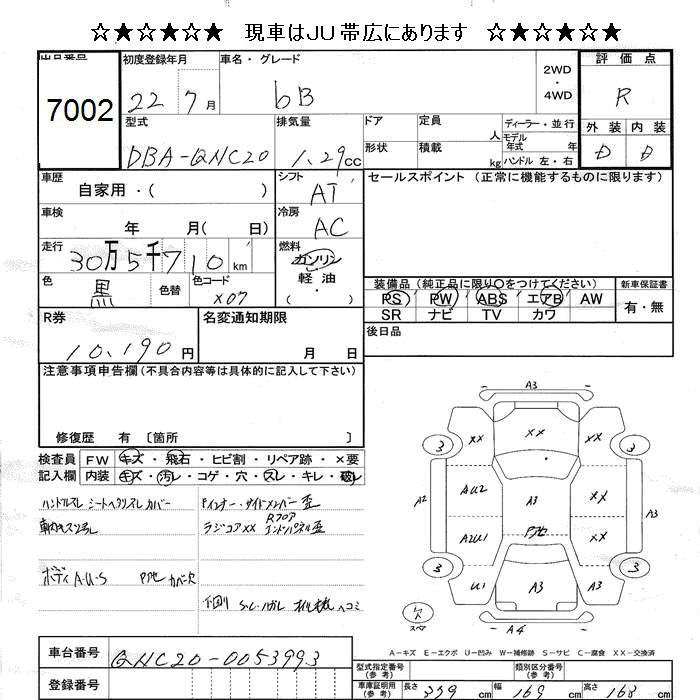 ☆★☆★☆★ 現車はJU帯広にあります ☆★☆★☆★
出品番号
7002
初度登録年月
22 7 月
車名・グレード
bB
2WD
・
4WD
評価点
R
外装 内装
D D
型式
DBA-QNC20
排気量
1.29cc
ドア
定員
人
形状
積載
kg
ディーラー・並行
モデル
年式 年
ハンドル 左・右
車歴
自家用・( )
シフト
AT
セールスポイント (正常に機能するものに限ります)
車検
年 月( 日)
冷房
AC
走行
30万5千710 km
燃料
ガソリン
軽油
( )
色
黒
色替
色コード
X07
装備品 (純正品に限り○をつけてください)
PS PW ABS エアB AW
SR ナビ TV カワ
新車保証書
有・無
R券
10,190円
名変通知期限
月 日
後日品
注意事項申告欄(不具合内容等は具体的に記入して下さい)
修復歴 有 〔箇所 〕
検査員
記入欄
FW キズ・飛石・ヒビ割・リペア跡・×要
内装 キズ・汚レ・コゲ・穴・スレ・キレ・破レ
ハンドルスレ シートヘタリスレ カバー
ボディ A・U・S
Fインナー・サイドメンバー歪
ラジコアXX Rフロア エンドパネル歪
下回り S・C・ハガレ ヘコミ
A3
3
XX
XX
XX
3
A2
AU2
A3
XX
A3
A2U1
XX
3
U1
A3
A3
3
スペア
A4
A-キズ E-エクボ U-凹み W-補修跡 S-サビ C-腐食 XX-交換済
車台番号
QNC20-0053993
登録番号
型式指定番号
(参考)
類別区分番号
(参考)
車庫証明用
(参考)
長さ 379 cm 幅 169 cm 高さ 168 cm